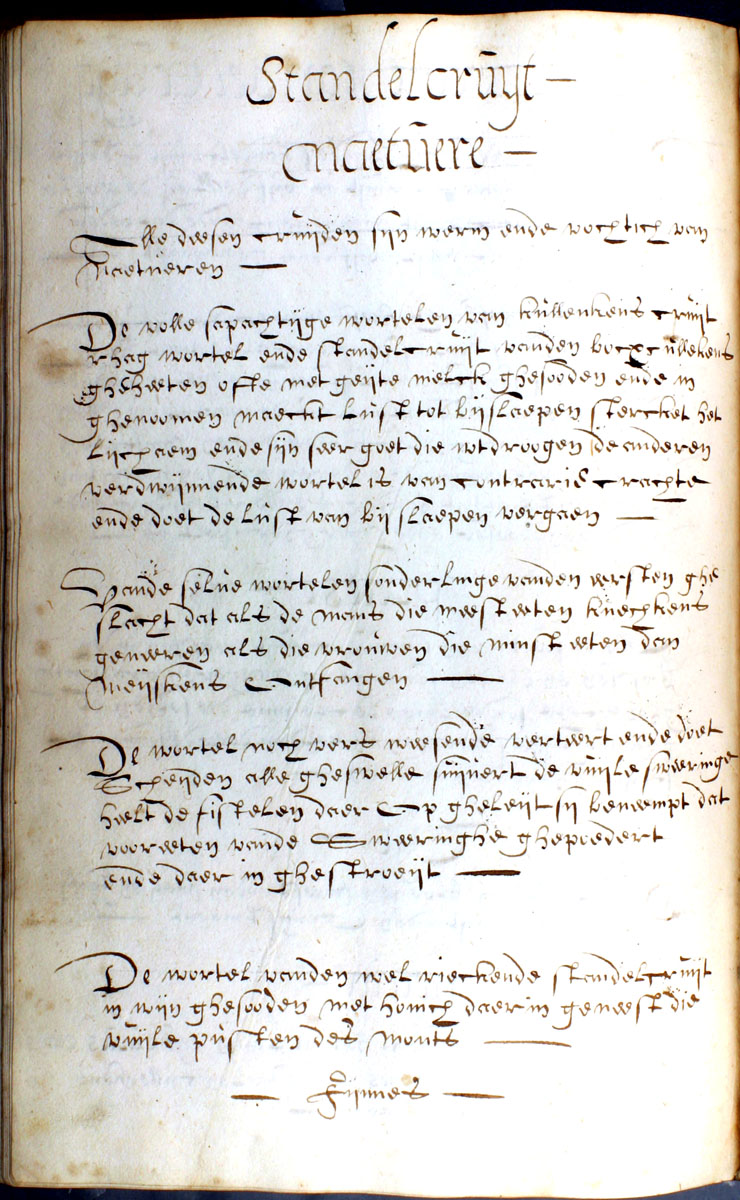 Standelcruÿt –
Naetuere –
Alle deesen cruijden sijn werm ende vochtich van
Naetueren —
De volle sapachtijge wortelen van kullenkens cruijt
rhag wortel ende standelcruijt vanden bocxcullekens
gheheeten ofte met geijte melck ghesooden ende in
ghenoomen maeckt lust tot bijslaepen stercket het
lijchaem ende sijn seer goet die wtdroogen de anderen
verdwijnnende wortel is van contrarie crachte
ende doet de lust van bij slaepen vergaen —
Vande selve wortelen sonderlinge vanden eersten ghe
slacht dat als de mans die meest eeten knechkens
genereren als die vrouwen die minst eeten dan
Meijskens Ontfangen —
De wortel noch vers weesende verteert ende doet
Scheijden alle gheswelle suijvert de vuijle sweeringe
heelt de fistelen daer Op gheleijt sij beneempt dat
voorteten vande Sweeringhe ghepoedert
ende daer in ghestroeijt —
De wortel vanden wel rieckende standelcruijt
in wijn ghesooden met honich daer in geneest die
vuijle pusten des monts —
— Fijnnes —